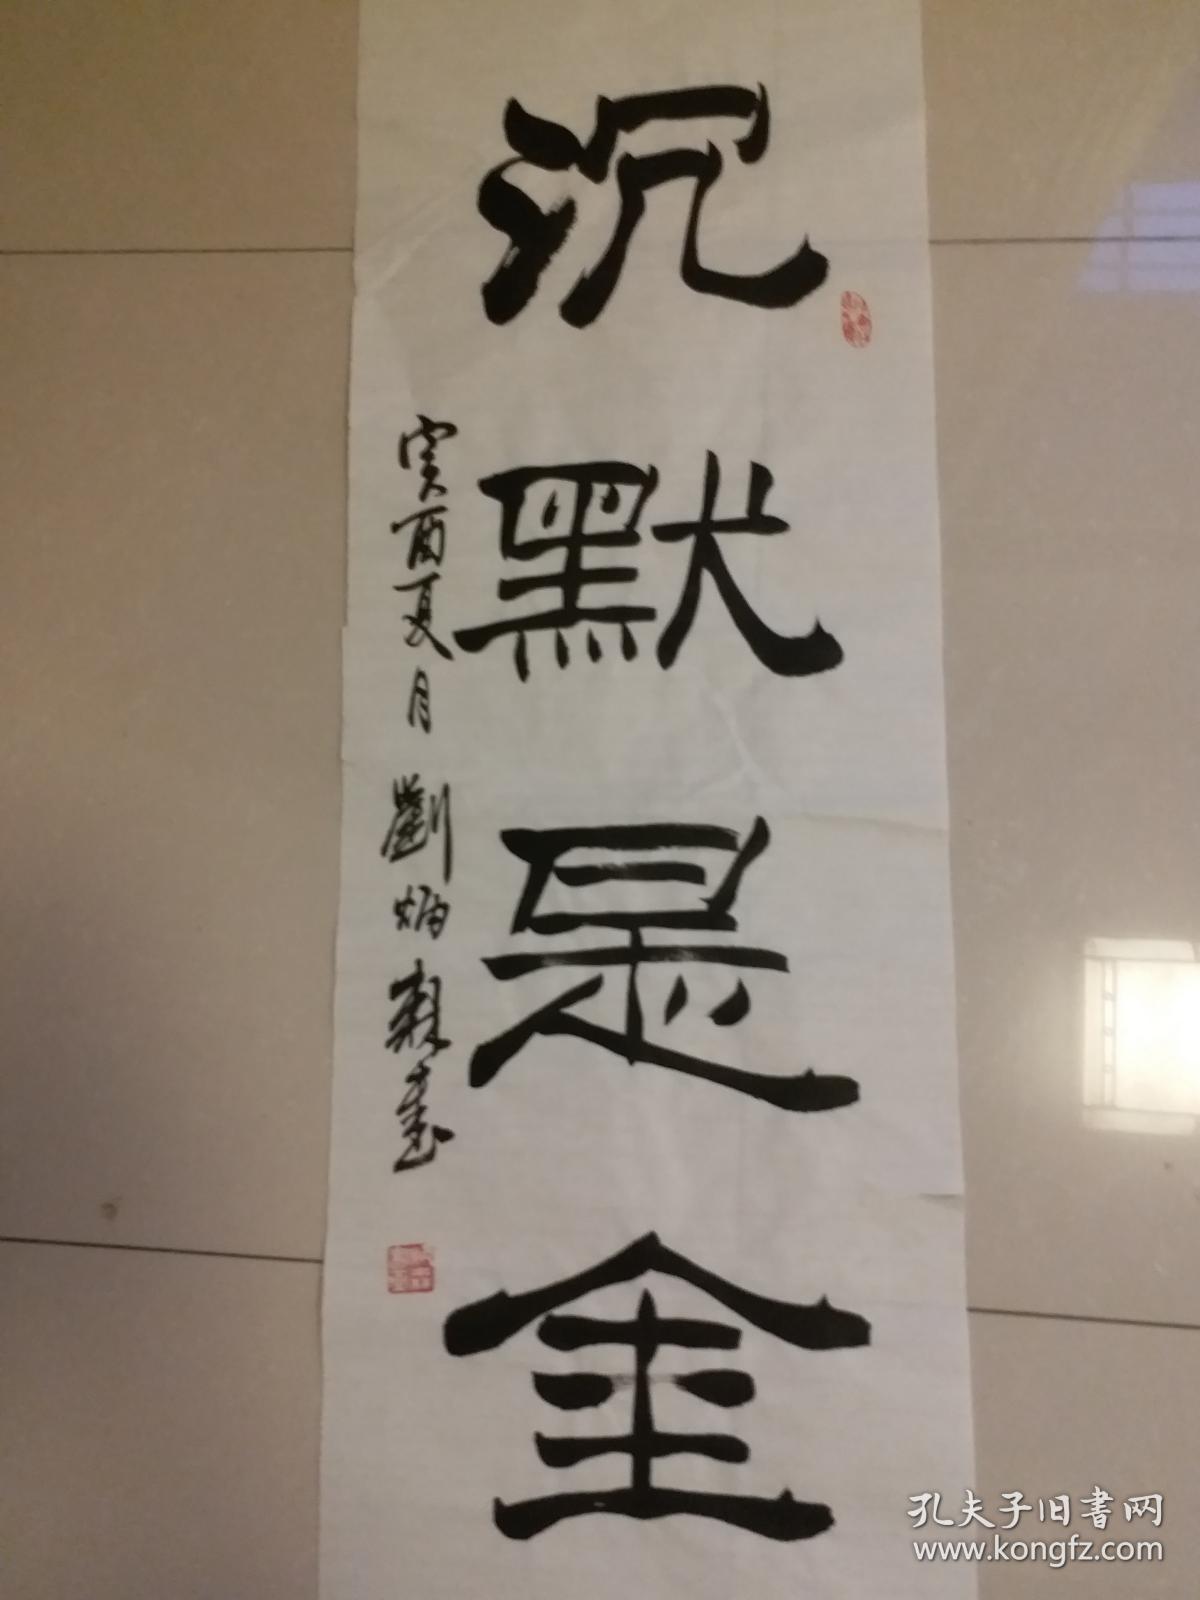 沉默是金
癸酉夏月 劉炳森書
孔夫子旧書网
www.kongfz.com